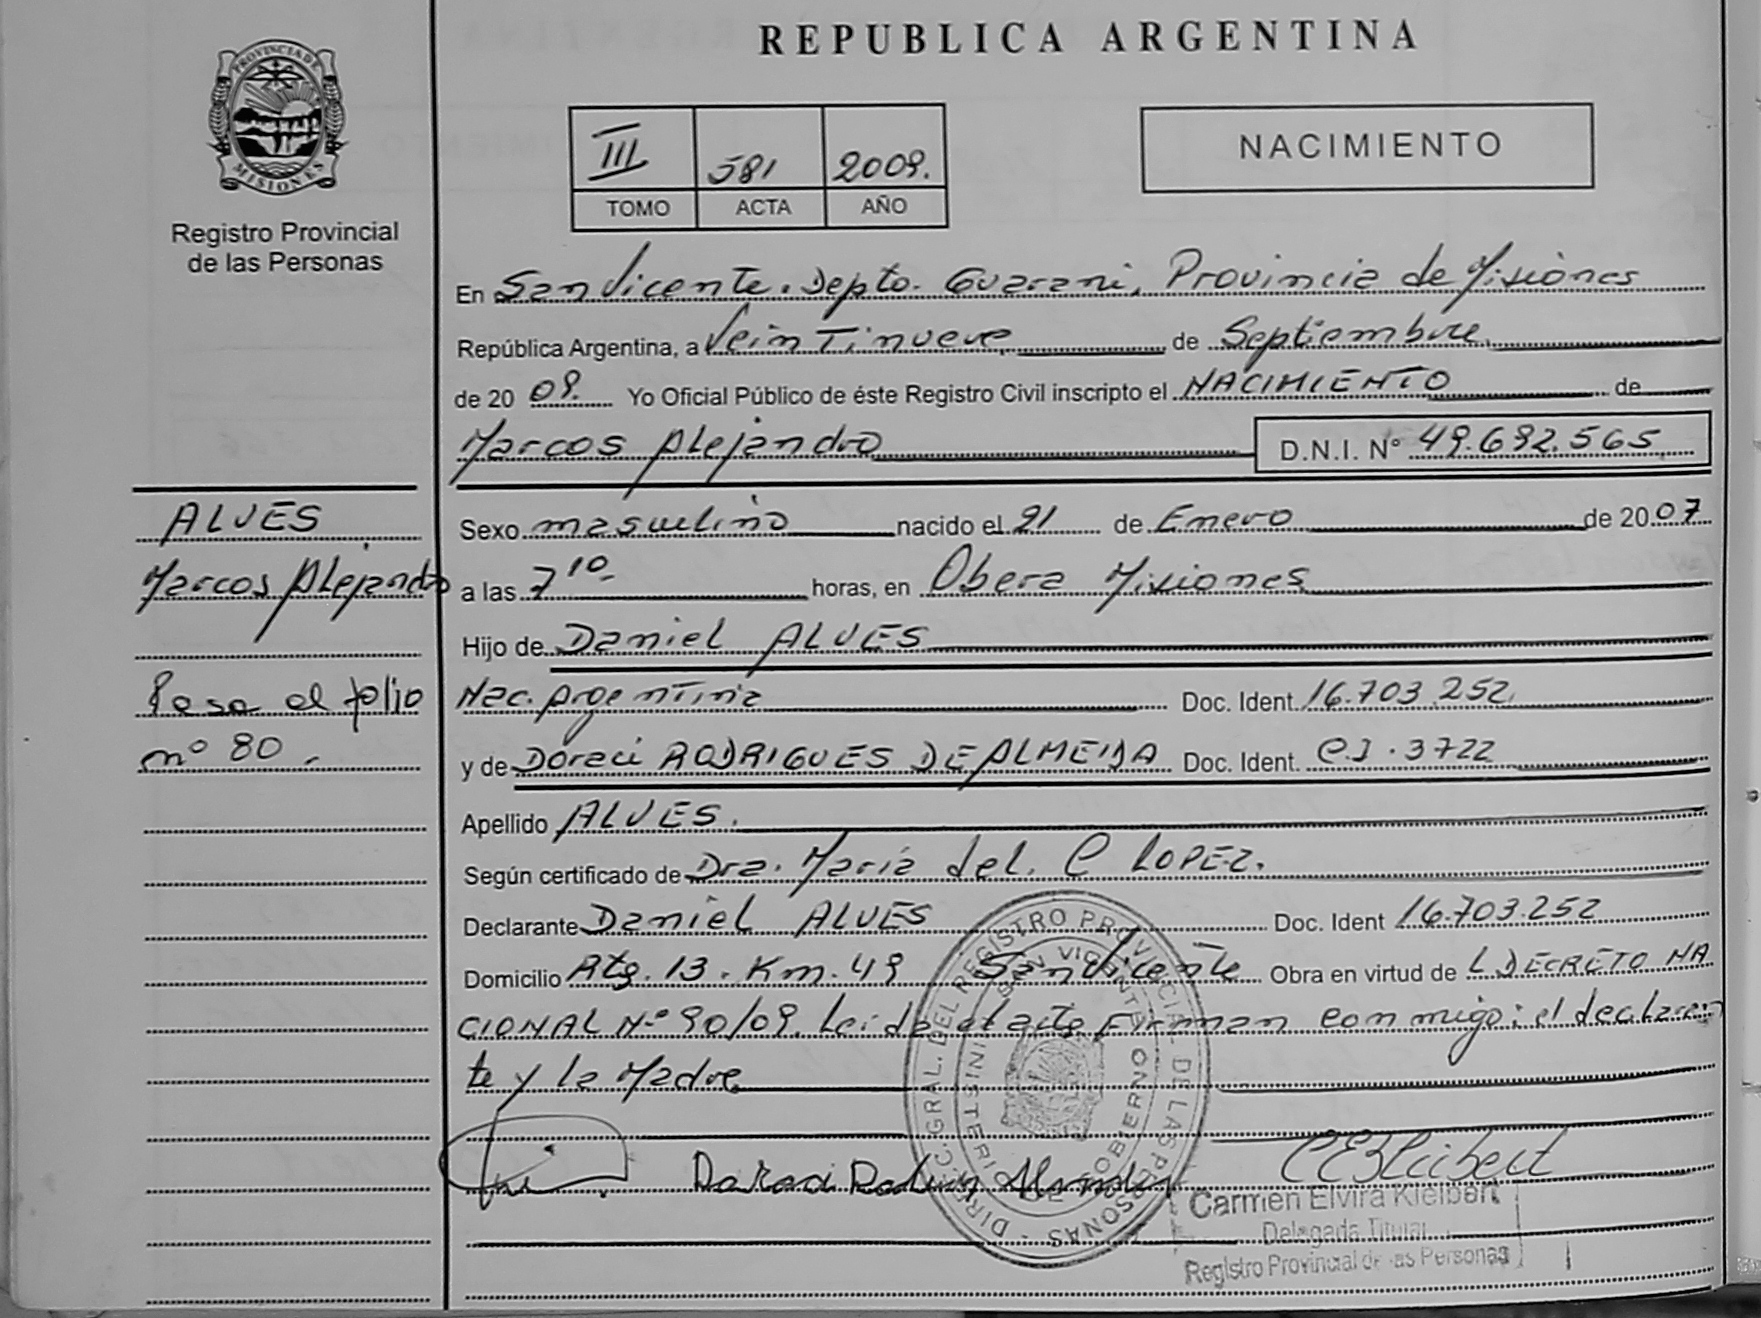 REPUBLICA ARGENTINA
PROVINCIA DE MISIONES
Registro Provincial
de las Personas
III 581 2009.
TOMO ACTA AÑO
NACIMIENTO
En San Vicente. Depto. Guarani, Provincia de Misiones
República Argentina, a Veintinueve de Septiembre
de 20 09. Yo Oficial Público de éste Registro Civil inscripto el NACIMIENTO de
Marcos Alejandro D.N.I. Nº 49.692.565
ALVES
Marcos Alejandro
Pasa al folio
nº 80.
Sexo masculino nacido el 21 de Enero de 20 07
a las 7 10 horas, en Obera Misiones
Hijo de Daniel ALVES
Nac. Argentina Doc. Ident. 16.703.252
y de Doraci RODRIGUES DE ALMEIDA Doc. Ident. C.I. 3722
Apellido ALVES.
Según certificado de Dra. Maria del. C LOPEZ.
Declarante Daniel ALVES Doc. Ident 16.703.252
Domicilio Rta. 13. Km. 49 San Vicente Obra en virtud de L DECRETO NA
CIONAL Nº 90/09. Leida el acta Firman conmigo: el declaran
te y la Madre
DIREC. GRAL. DEL REGISTRO PROVINCIAL DE LAS PERSONAS
SAN VICENTE
MINISTERIO DE GOBIERNO
Carmen Elvira Kleibert
Delegada Titular
Registro Provincial de las Personas